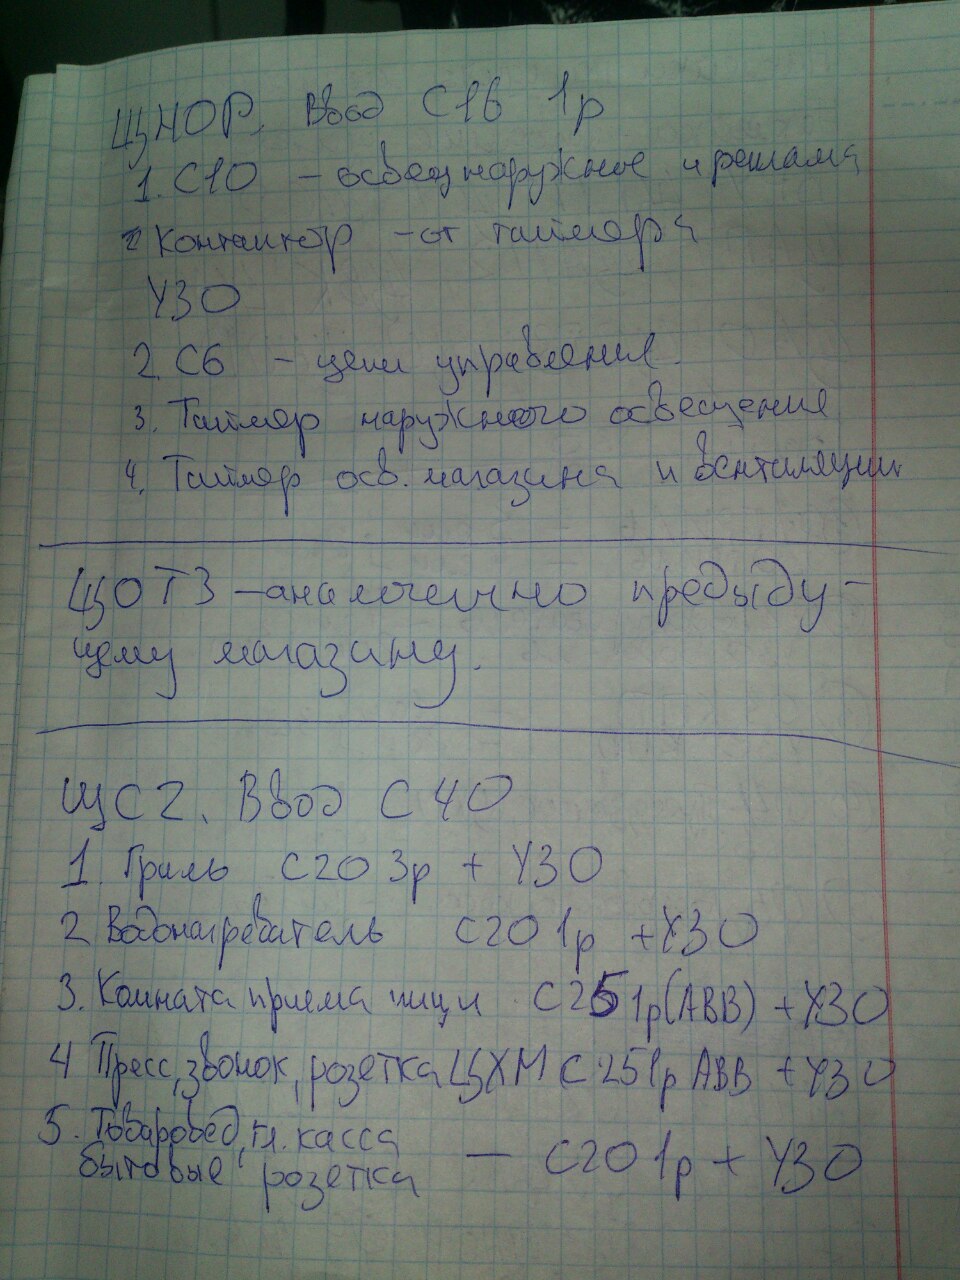 ЩНОР. Ввод С16 1р
1. С10 – освещ наружное и реклама
2 Контактор – от таймера
УЗО
2. С6 – цепи управления.
3. Таймер наружного освещения
4. Таймер осв. магазина и вентиляции
ЩОТЗ – аналогично предыду-
щему магазину.
ЩС2. Ввод С40
1. Гриль С20 3р + УЗО
2 Водонагреватель С20 1р + УЗО
3. Комната приема пищи С25 1р (АВВ) + УЗО
4 Пресс, звонок, розетка ЦХМ С25 1р АВВ + УЗО
5. Товаровед, гл. касса
бытовые розетка — С20 1р + УЗО